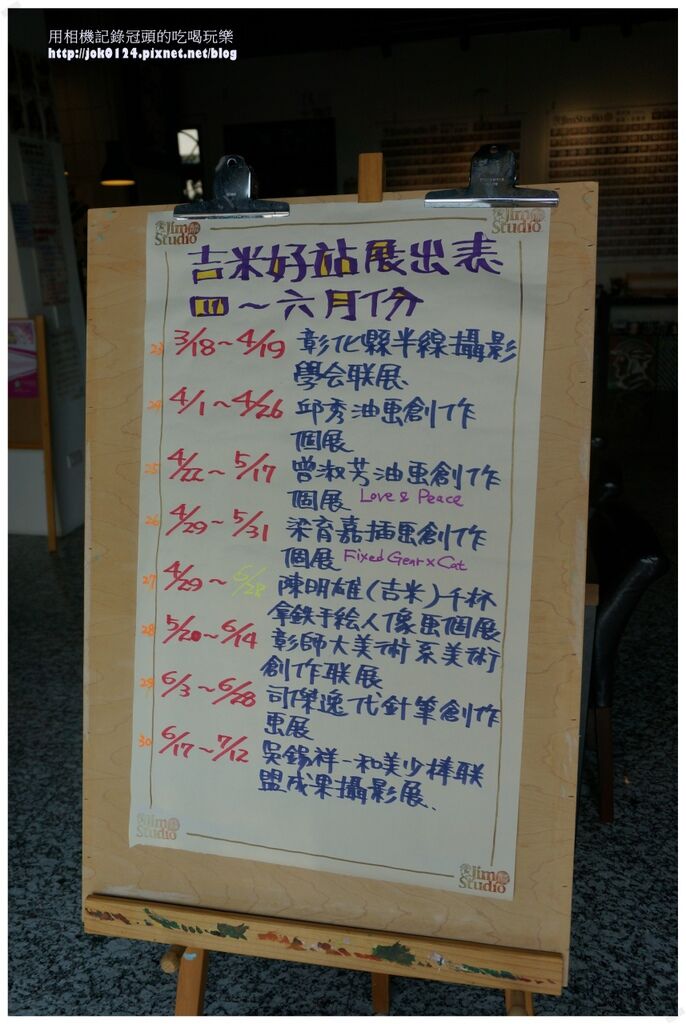 用相機記錄冠頭的吃喝玩樂
http://jok0124.pixnet.net/blog
Jim Studio
Jim Studio
吉米好站展出表
四～六月份
23 3/18～4/19 彰化縣半線攝影
學会联展、
24 4/1～4/26 邱秀油畫創作
個展
25 4/22～5/17 曾淑芳油畫創作
個展 Love & Peace
26 4/29～5/31 梁育嘉插畫創作
個展 Fixed Gear x Cat
27 4/29～6/28 陳明雄(吉米)千杯
拿鉄手絵人像畫個展
28 5/20～6/14 彰師大美術系美術
創作联展
29 6/3～6/28 司傑逸代針筆創作
畫展
30 6/17～7/12 吳錫祥-和美少棒联
盟成果攝影展、
Jim Studio
Jim Studio